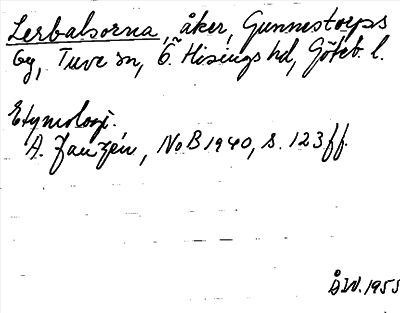 Lerbalsorna, åker, Gunnestorps
by, Tuve sn, Ö. Hisings hd, Göteb. l.
Etymologi.
A. Janzén, NoB 1940, s. 123 ff.
ÅW. 1955